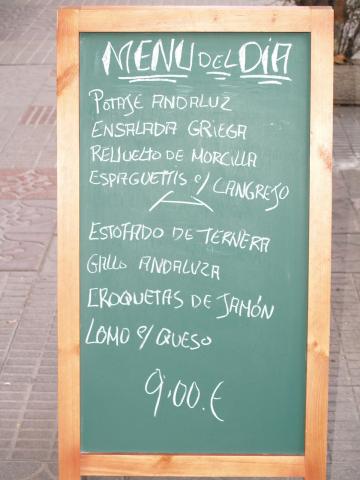 MENU DEL DÍA
POTAJE ANDALUZ
ENSALADA GRIEGA
REVUELTO DE MORCILLA
ESPAGUETTIS C/ CANGREJO
ESTOFADO DE TERNERA
GALLO ANDALUZA
CROQUETAS DE JAMÓN
LOMO C/ QUESO
9'00.€